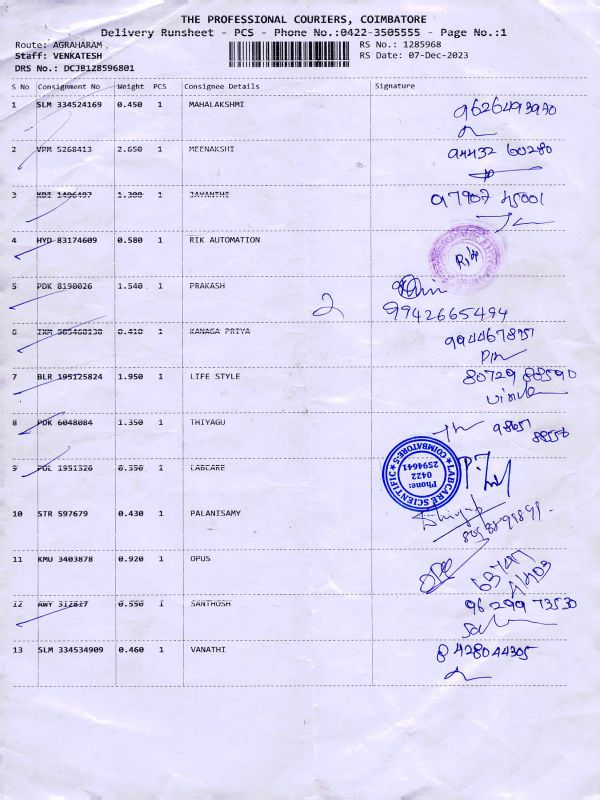 THE PROFESSIONAL COURIERS, COIMBATORE
Delivery Runsheet - PCS - Phone No.:0422-3505555 - Page No.:1
Route: AGRAHARAM
RS No.: 1285968
Staff: VENKATESH
RS Date: 07-Dec-2023
DRS No.: DCJB128596801
S No Consignment No Weight PCS Consignee Details Signature
1 SLM 334524169 0.450 1 MAHALAKSHMI 9626493970
2 VPM 5268413 2.650 1 MEENAKSHI 94432 60280
3 KDI 1496497 1.300 1 JAYANTHI 97907 45001
4 HYD 83174609 0.580 1 RIK AUTOMATION
5 PDK 8190026 1.540 1 PRAKASH
2 9942665494
6 0.410 1 KANAGA PRIYA
7 BLR 195125824 1.950 1 LIFE STYLE 80729 88590
8 PDK 6048084 1.350 1 THIYAGU
9 POL 1951326 0.350 1 LABCARE
LABCARE SCIENTIFIC
COIMBATORE-5
Phone:
0422
2594641
10 STR 597679 0.430 1 PALANISAMY
11 KMU 3403878 0.920 1 OPUS
12 AWY 312817 0.550 1 SANTHOSH 96299 73530
13 SLM 334534909 0.460 1 VANATHI 8428044305